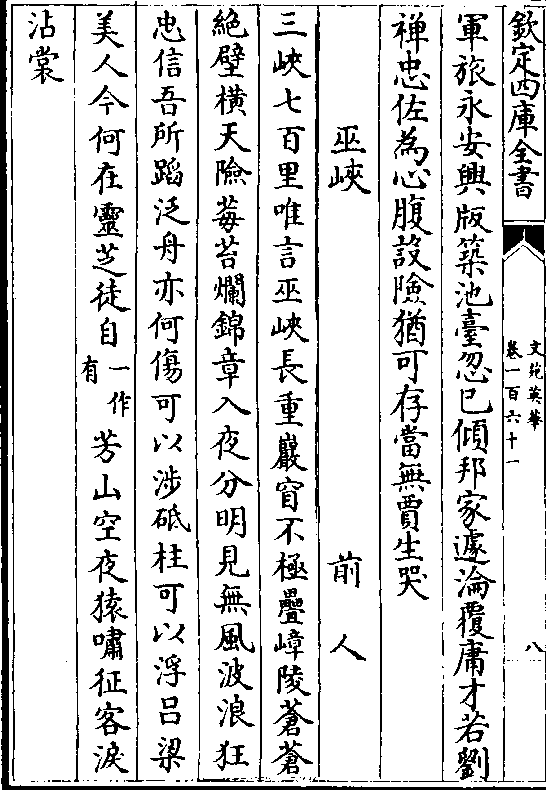 欽定四庫全書
文苑英華
卷一百六十一
八
軍旅永安興版築池臺忽已傾邦家遽淪覆庸才若劉
禅忠佐為心腹設險猶可存當無賈生哭
巫峽 前人
三峽七百里唯言巫峽長重巖窅不極疊嶂陵蒼蒼
絕壁橫天險莓苔爛錦章入夜分明見無風波浪狂
忠信吾所蹈泛舟亦何傷可以涉砥柱可以浮呂梁
美人今何在靈芝徒自一作有芳山空夜猿嘯征客淚
沾裳